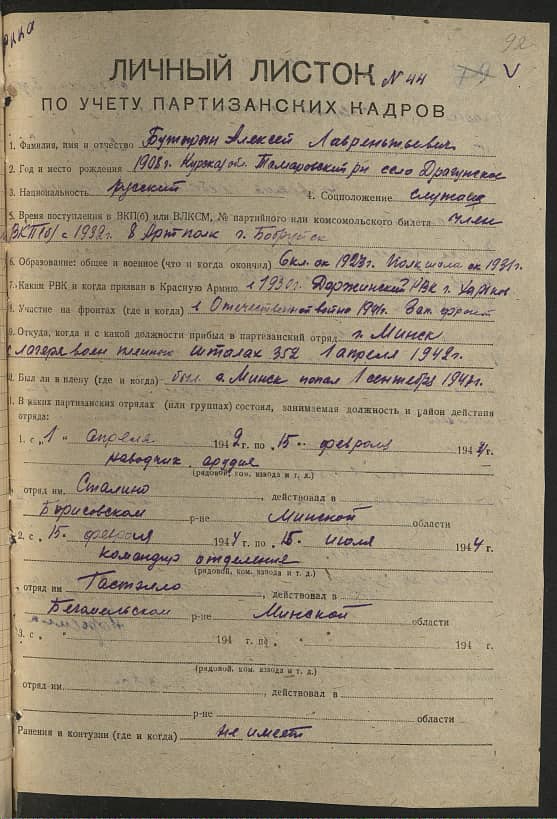 92
ЛИЧНЫЙ ЛИСТОК N 44 V
ПО УЧЕТУ ПАРТИЗАНСКИХ КАДРОВ
1. Фамилия, имя и отчество Бутырин Алексей Лаврентьевич
2. Год и место рождения 1908 г. Курская обл. Томаровский р-н село Драгунское
3. Национальность русский 4. Соцположение служащ
5. Время поступления в ВКП(б) или ВЛКСМ, № партийного или комсомольского билета член
ВКП(б) с 1932 г. 8 Артполк г. Бобруйск
6. Образование: общее и военное (что и когда окончил) 6 кл. ок 1923 г. Полк школа ок 1931 г.
7. Каким РВК и когда призван в Красную Армию в 1930 г. РВК г. Харьков
8. Участие на фронтах (где и когда) в Отечественной войне 1941 г. Зап. фронт
9. Откуда, когда и с какой должности прибыл в партизанский отряд г. Минск
с лагеря военпленных шталах 352 1 апреля 1942 г.
10. Был ли в плену (где и когда) был г. Минск попал 1 сентября 1941 г.
11. В каких партизанских отрядах (или группах) состоял, занимаемая должность и район действия
отряда:
1. с „1" апреля 1942 г. по „15" февраля 1944 г.
наводчик орудия
(рядовой, ком. взвода и т. д.)
отряд им Сталино, действовал в
Борисовском р-не Минской области
2. с „15" февраля 1944 г. по „15" июля 1944 г.
командир отделения
(рядовой, ком. взвода и т. д.)
отряд им Гастэлло, действовал в
Бегомельском р-не Минской области
3. с „ " 194 г. по „ " 194 г.
(рядовой, ком. взвода и т. д.)
отряд им. , действовал в
р-не области
Ранения и контузии (где и когда) не имеет